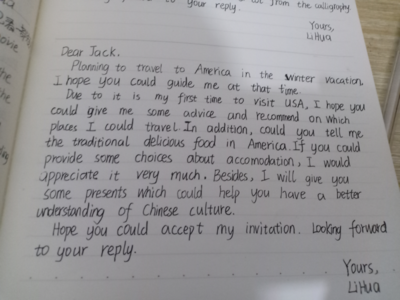 to your reply.
from the calligraphy
Yours,
LiHua
Dear Jack.
Planning to travel to America in the winter vacation,
I hope you could guide me at that time.
Due to it is my first time to visit USA, I hope you
could give me some advice and recommend on which
places I could travel. In addition, could you tell me
the traditional delicious food in America. If you could
provide some choices about accomodation, I would
appreciate it very much. Besides, I will give you
some presents which could help you have a better
understanding of Chinese culture.
Hope you could accept my invitation. Looking forward
to your reply.
Yours,
LiHua